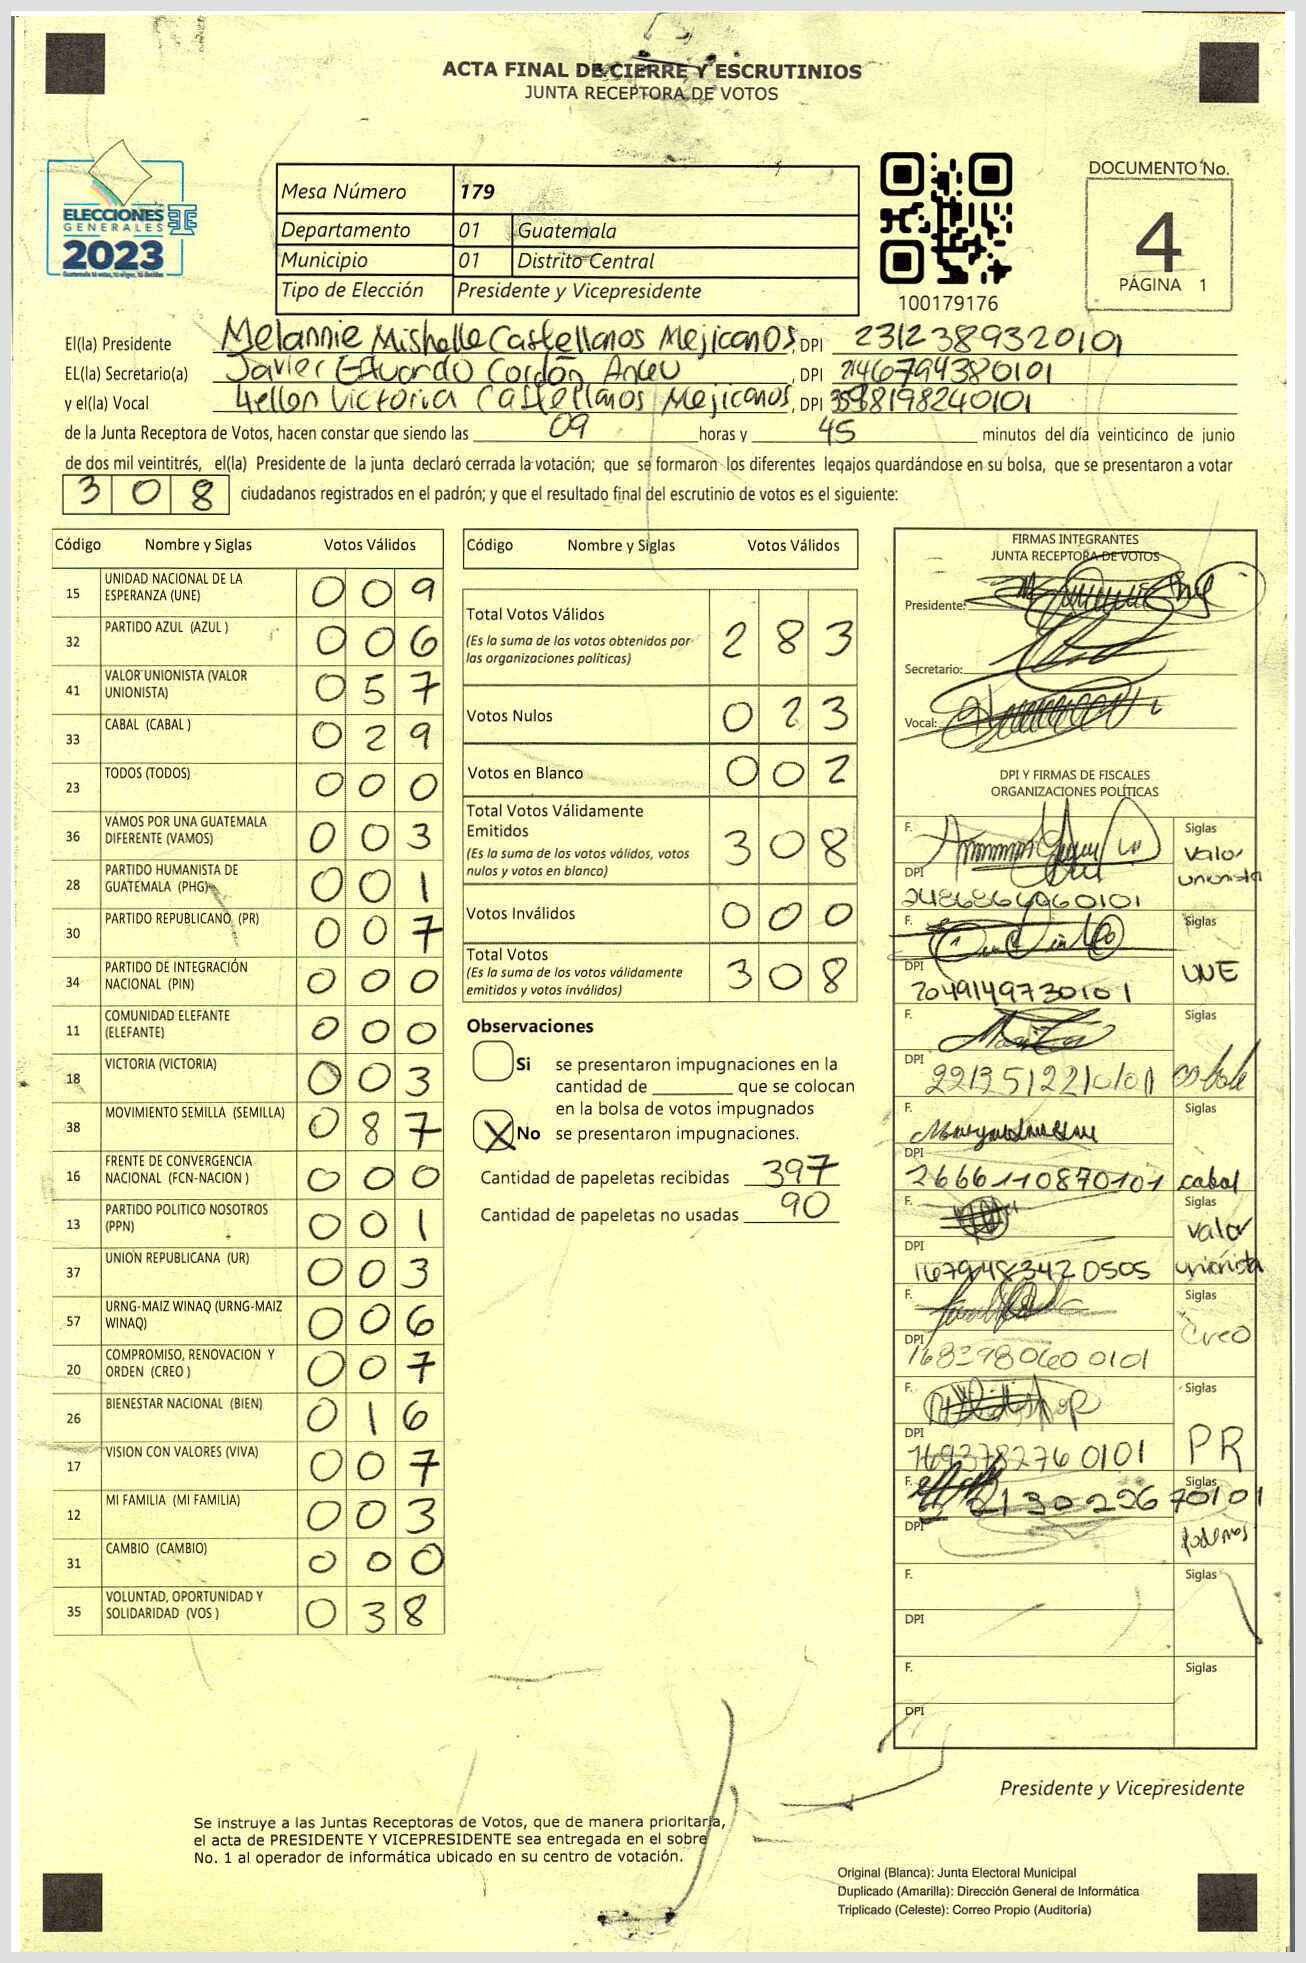 ACTA FINAL DE CIERRE Y ESCRUTINIOS
JUNTA RECEPTORA DE VOTOS
ELECCIONES
GENERALES
2023
Mesa Número 179
Departamento 01 Guatemala
Municipio 01 Distrito Central
Tipo de Elección Presidente y Vicepresidente
100179176
DOCUMENTO No.
4
PÁGINA 1
El(la) Presidente Melannie Mishelle Castellanos Mejicanos, DPI 2312389320101
EL(la) Secretario(a) Javier Eduardo Cordón , DPI 2146794380101
y el(la) Vocal Victoria Castellanos Mejicanos, DPI 3598198240101
de la Junta Receptora de Votos, hacen constar que siendo las 09 horas y 45 minutos del día veinticinco de junio
de dos mil veintitrés, el(la) Presidente de la junta declaró cerrada la votación; que se formaron los diferentes legajos quardándose en su bolsa, que se presentaron a votar
308 ciudadanos registrados en el padrón; y que el resultado final del escrutinio de votos es el siguiente:
Código Nombre y Siglas Votos Válidos
15 UNIDAD NACIONAL DE LA ESPERANZA (UNE) 009
32 PARTIDO AZUL (AZUL ) 006
41 VALOR UNIONISTA (VALOR UNIONISTA) 057
33 CABAL (CABAL ) 029
23 TODOS (TODOS) 000
36 VAMOS POR UNA GUATEMALA DIFERENTE (VAMOS) 003
28 PARTIDO HUMANISTA DE GUATEMALA (PHG) 001
30 PARTIDO REPUBLICANO (PR) 007
34 PARTIDO DE INTEGRACIÓN NACIONAL (PIN) 000
11 COMUNIDAD ELEFANTE (ELEFANTE) 000
18 VICTORIA (VICTORIA) 003
38 MOVIMIENTO SEMILLA (SEMILLA) 087
16 FRENTE DE CONVERGENCIA NACIONAL (FCN-NACION ) 000
13 PARTIDO POLITICO NOSOTROS (PPN) 001
37 UNION REPUBLICANA (UR) 003
57 URNG-MAIZ WINAQ (URNG-MAIZ WINAQ) 006
20 COMPROMISO, RENOVACION Y ORDEN (CREO ) 007
26 BIENESTAR NACIONAL (BIEN) 016
17 VISION CON VALORES (VIVA) 007
12 MI FAMILIA (MI FAMILIA) 003
31 CAMBIO (CAMBIO) 000
35 VOLUNTAD, OPORTUNIDAD Y SOLIDARIDAD (VOS ) 038
Código Nombre y Siglas Votos Válidos
Total Votos Válidos 283
(Es la suma de los votos obtenidos por
las organizaciones políticas)
Votos Nulos 023
Votos en Blanco 002
Total Votos Válidamente
Emitidos 308
(Es la suma de los votos válidos, votos
nulos y votos en blanco)
Votos Inválidos 000
Total Votos 308
(Es la suma de los votos válidamente
emitidos y votos inválidos)
Observaciones
Si se presentaron impugnaciones en la
cantidad de ________ que se colocan
en la bolsa de votos impugnados
X No se presentaron impugnaciones.
Cantidad de papeletas recibidas 397
Cantidad de papeletas no usadas 90
FIRMAS INTEGRANTES
JUNTA RECEPTORA DE VOTOS
Presidente:
Secretario:
Vocal:
DPI Y FIRMAS DE FISCALES
ORGANIZACIONES POLÍTICAS
F. Siglas
Valor
unionista
DPI
F. Siglas
UNE
DPI 2049149730101
F. Siglas
DPI
F. Siglas
DPI 2666110870101 cabal
F. Siglas
valor
unionista
DPI 1679483420505
F. Siglas
Creo
DPI 1683980600101
F. Siglas
PR
DPI 1693782760101
F. Siglas
2130225670101
DPI
podemos
F. Siglas
DPI
F. Siglas
DPI
Presidente y Vicepresidente
Se instruye a las Juntas Receptoras de Votos, que de manera prioritaria,
el acta de PRESIDENTE Y VICEPRESIDENTE sea entregada en el sobre
No. 1 al operador de informática ubicado en su centro de votación.
Original (Blanca): Junta Electoral Municipal
Duplicado (Amarilla): Dirección General de Informática
Triplicado (Celeste): Correo Propio (Auditoría)